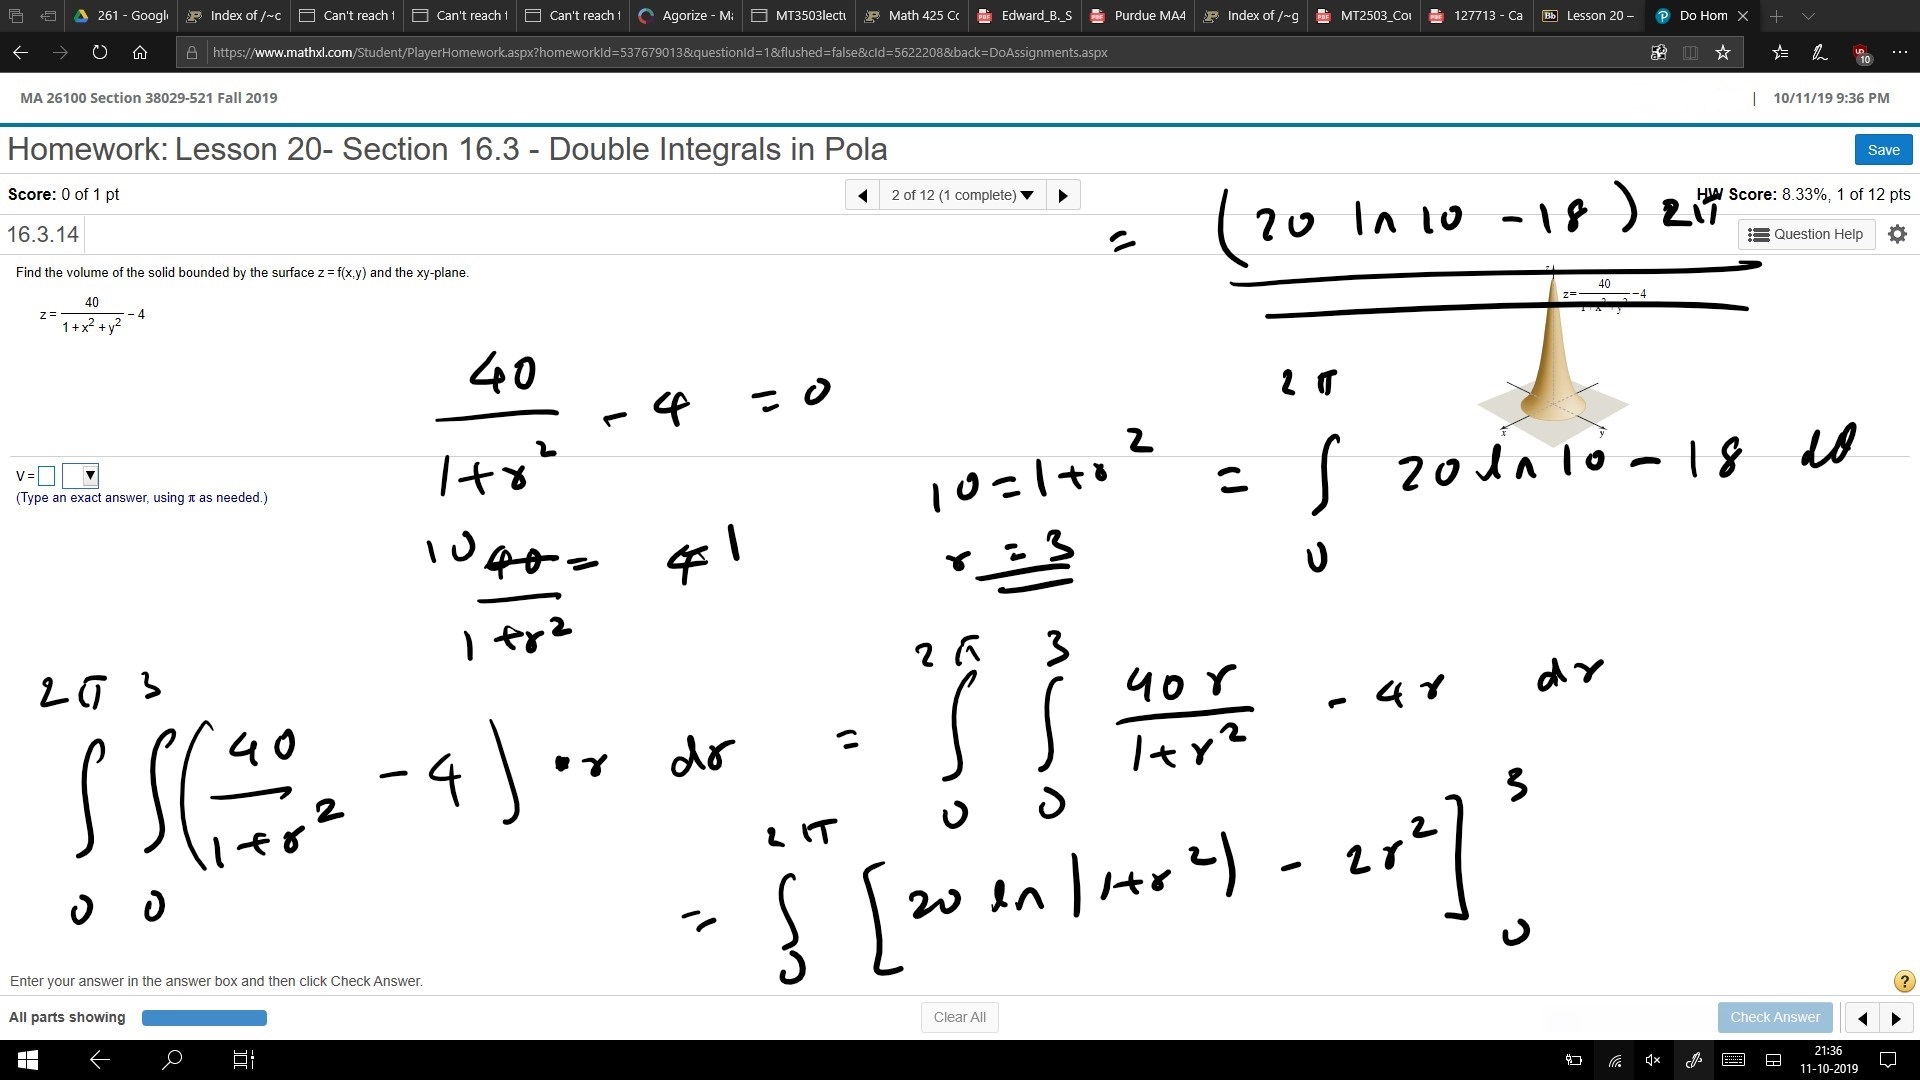 261 - Googl Index of /~c Can't reach t Can't reach t Can't reach t Agorize - Ma MT3503lectu Math 425 Co Edward_B._S Purdue MA4 Index of /~g MT2503_Cou 127713 - Ca Lesson 20 – Do Hom
https://www.mathxl.com/Student/PlayerHomework.aspx?homeworkId=537679013&questionId=1&flushed=false&cId=5622208&back=DoAssignments.aspx 10
MA 26100 Section 38029-521 Fall 2019 | 10/11/19 9:36 PM
Homework: Lesson 20- Section 16.3 - Double Integrals in Pola Save
Score: 0 of 1 pt 2 of 12 (1 complete) HW Score: 8.33%, 1 of 12 pts
= (20 ln 10 - 18) 2π
16.3.14 Question Help
Find the volume of the solid bounded by the surface z = f(x,y) and the xy-plane.
z = 40 / (1 + x² + y²) - 4
z = 40 / (1 + x² + y²) - 4
x y
40 / (1 + r²) - 4 = 0
V =
(Type an exact answer, using π as needed.)
10 = 1 + r²
= ∫₀^2π 20 ln 10 - 18 dθ
10 40 / (1 + r²) = 4 1
r = 3
∫₀^2π ∫₀^3 (40 / (1 + r²) - 4) · r dr = ∫₀^2π ∫₀^3 40r / (1 + r²) - 4r dr
= ∫₀^2π [20 ln |1 + r²| - 2r²]₀^3
Enter your answer in the answer box and then click Check Answer. ?
All parts showing Clear All Check Answer
21:36
11-10-2019